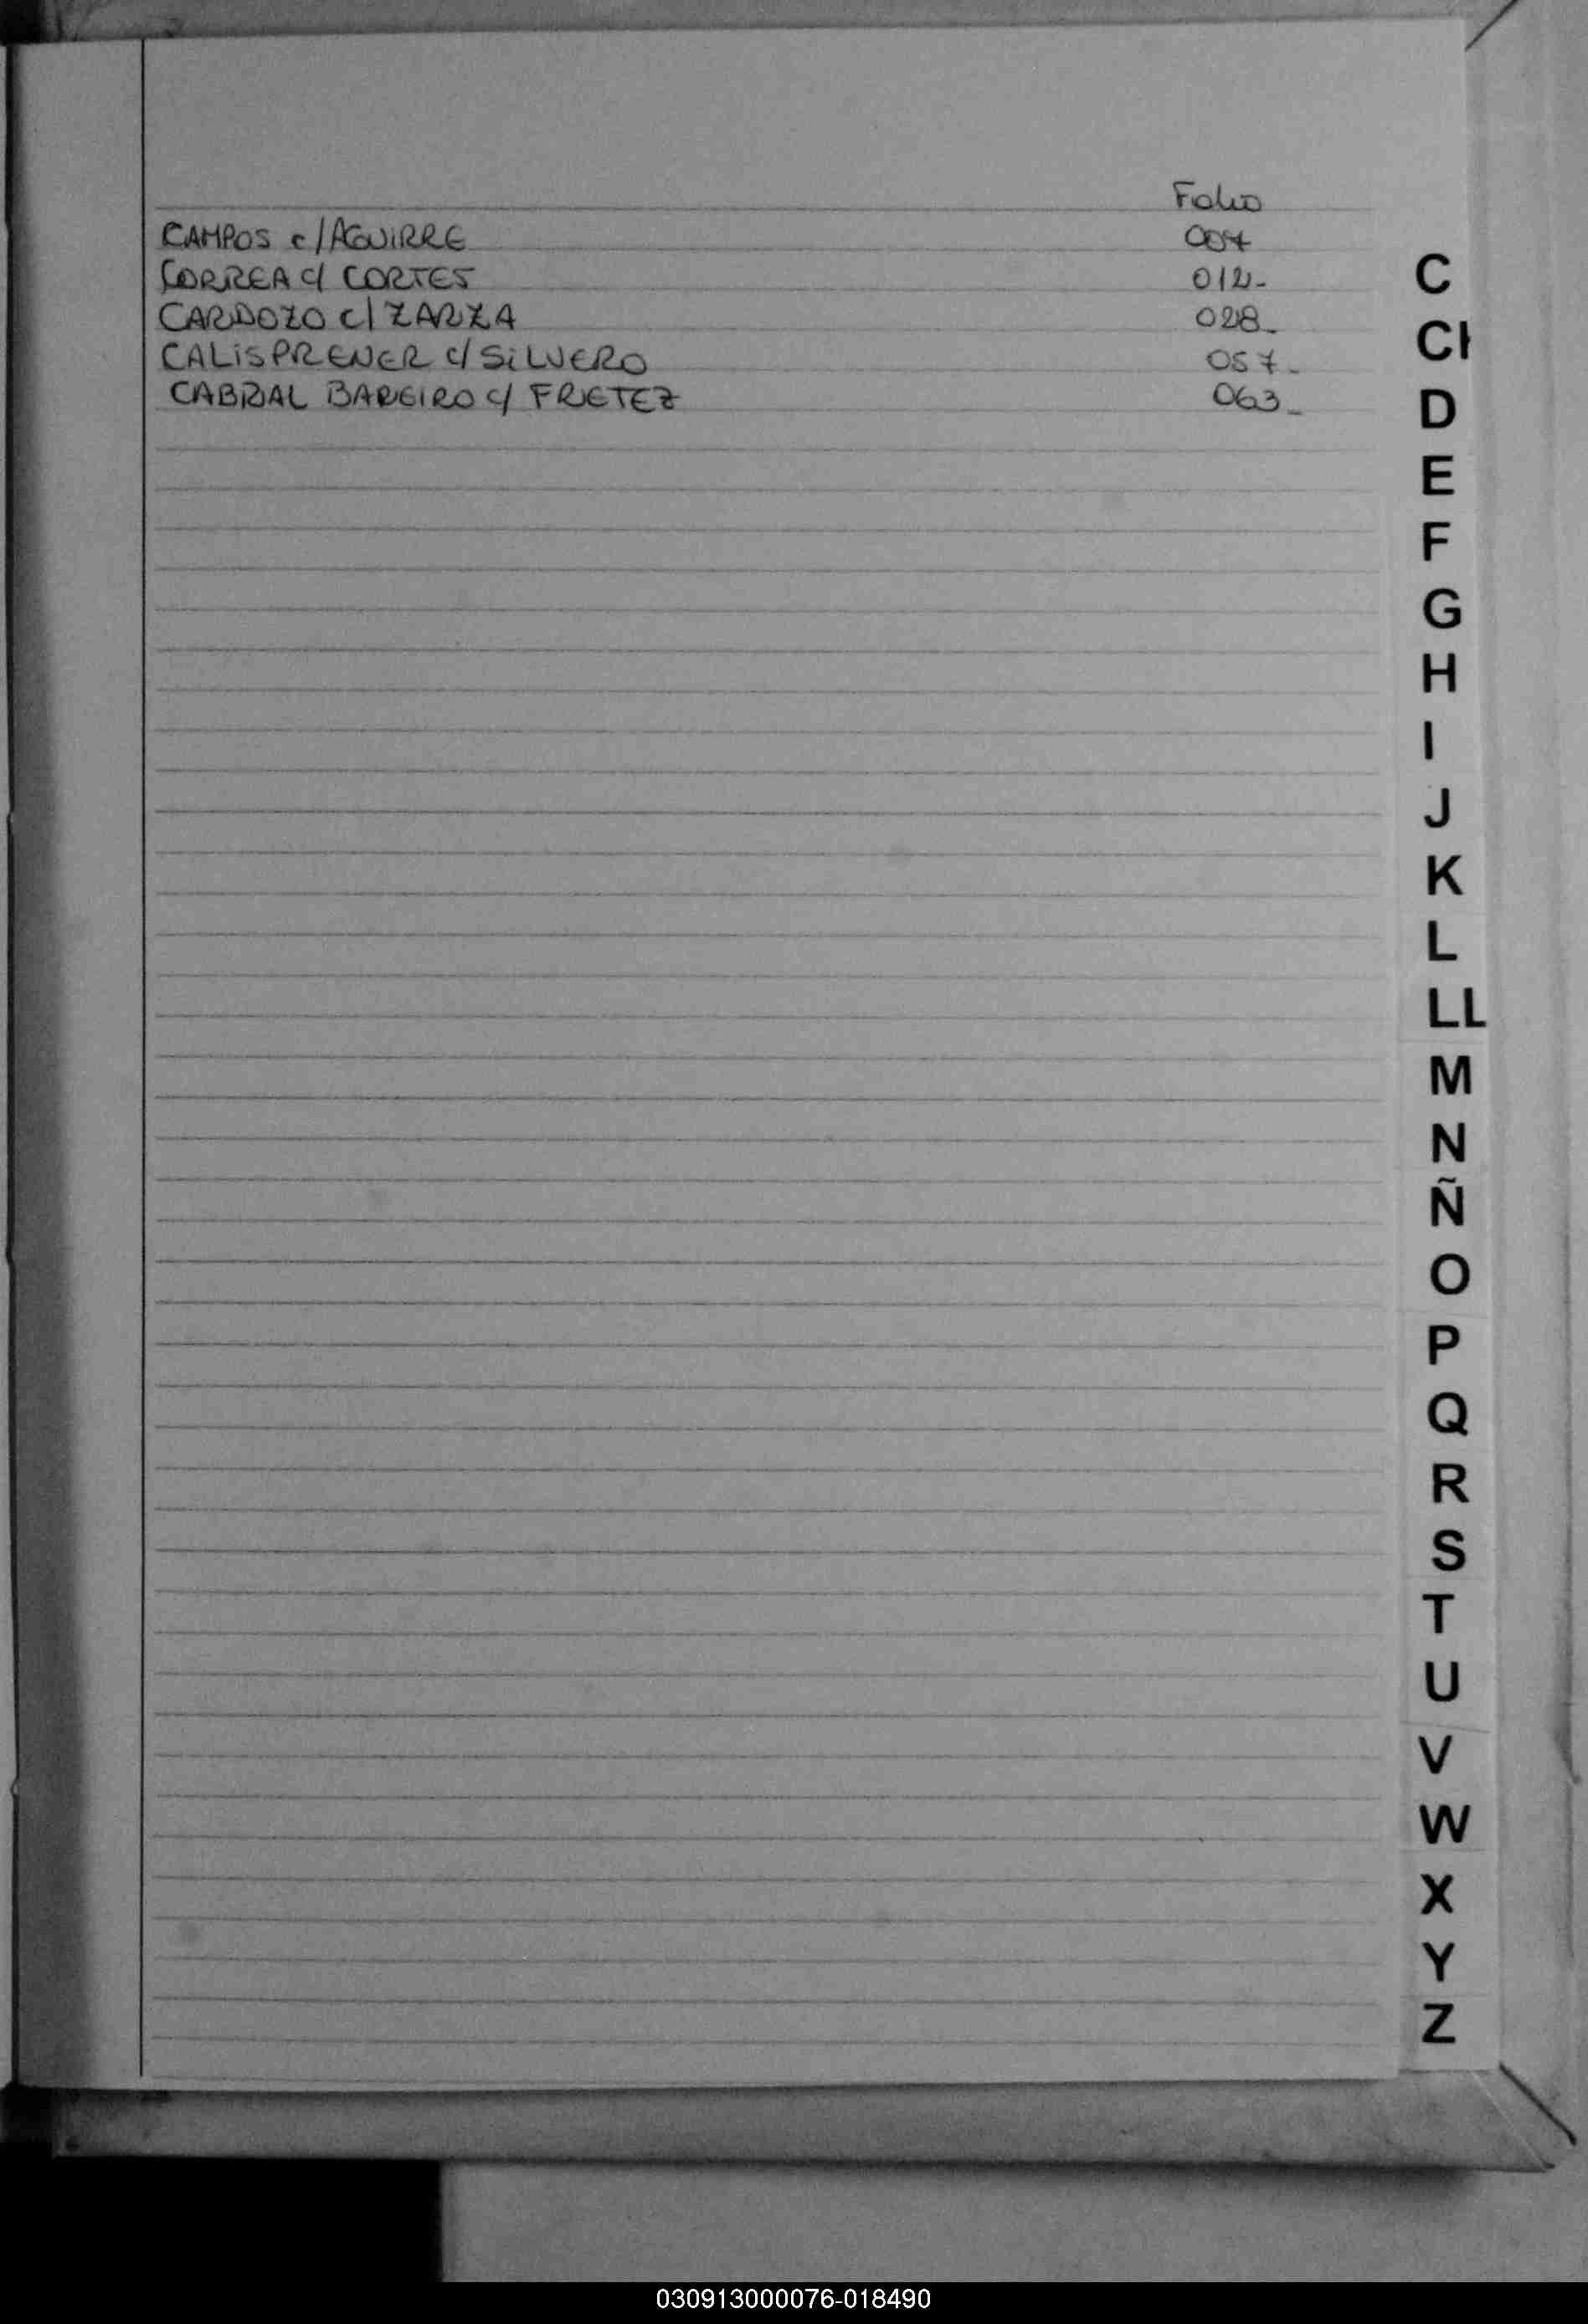 Folio
CAMPOS c/ AGUIRRE 007
CORREA c/ CORTES 012-
CARDOZO c/ ZARZA 028-
CALISPRENER c/ SILVERO 057-
CABRAL BAREIRO c/ FRETEZ 063-
C
CH
D
E
F
G
H
I
J
K
L
LL
M
N
Ñ
O
P
Q
R
S
T
U
V
W
X
Y
Z
030913000076-018490